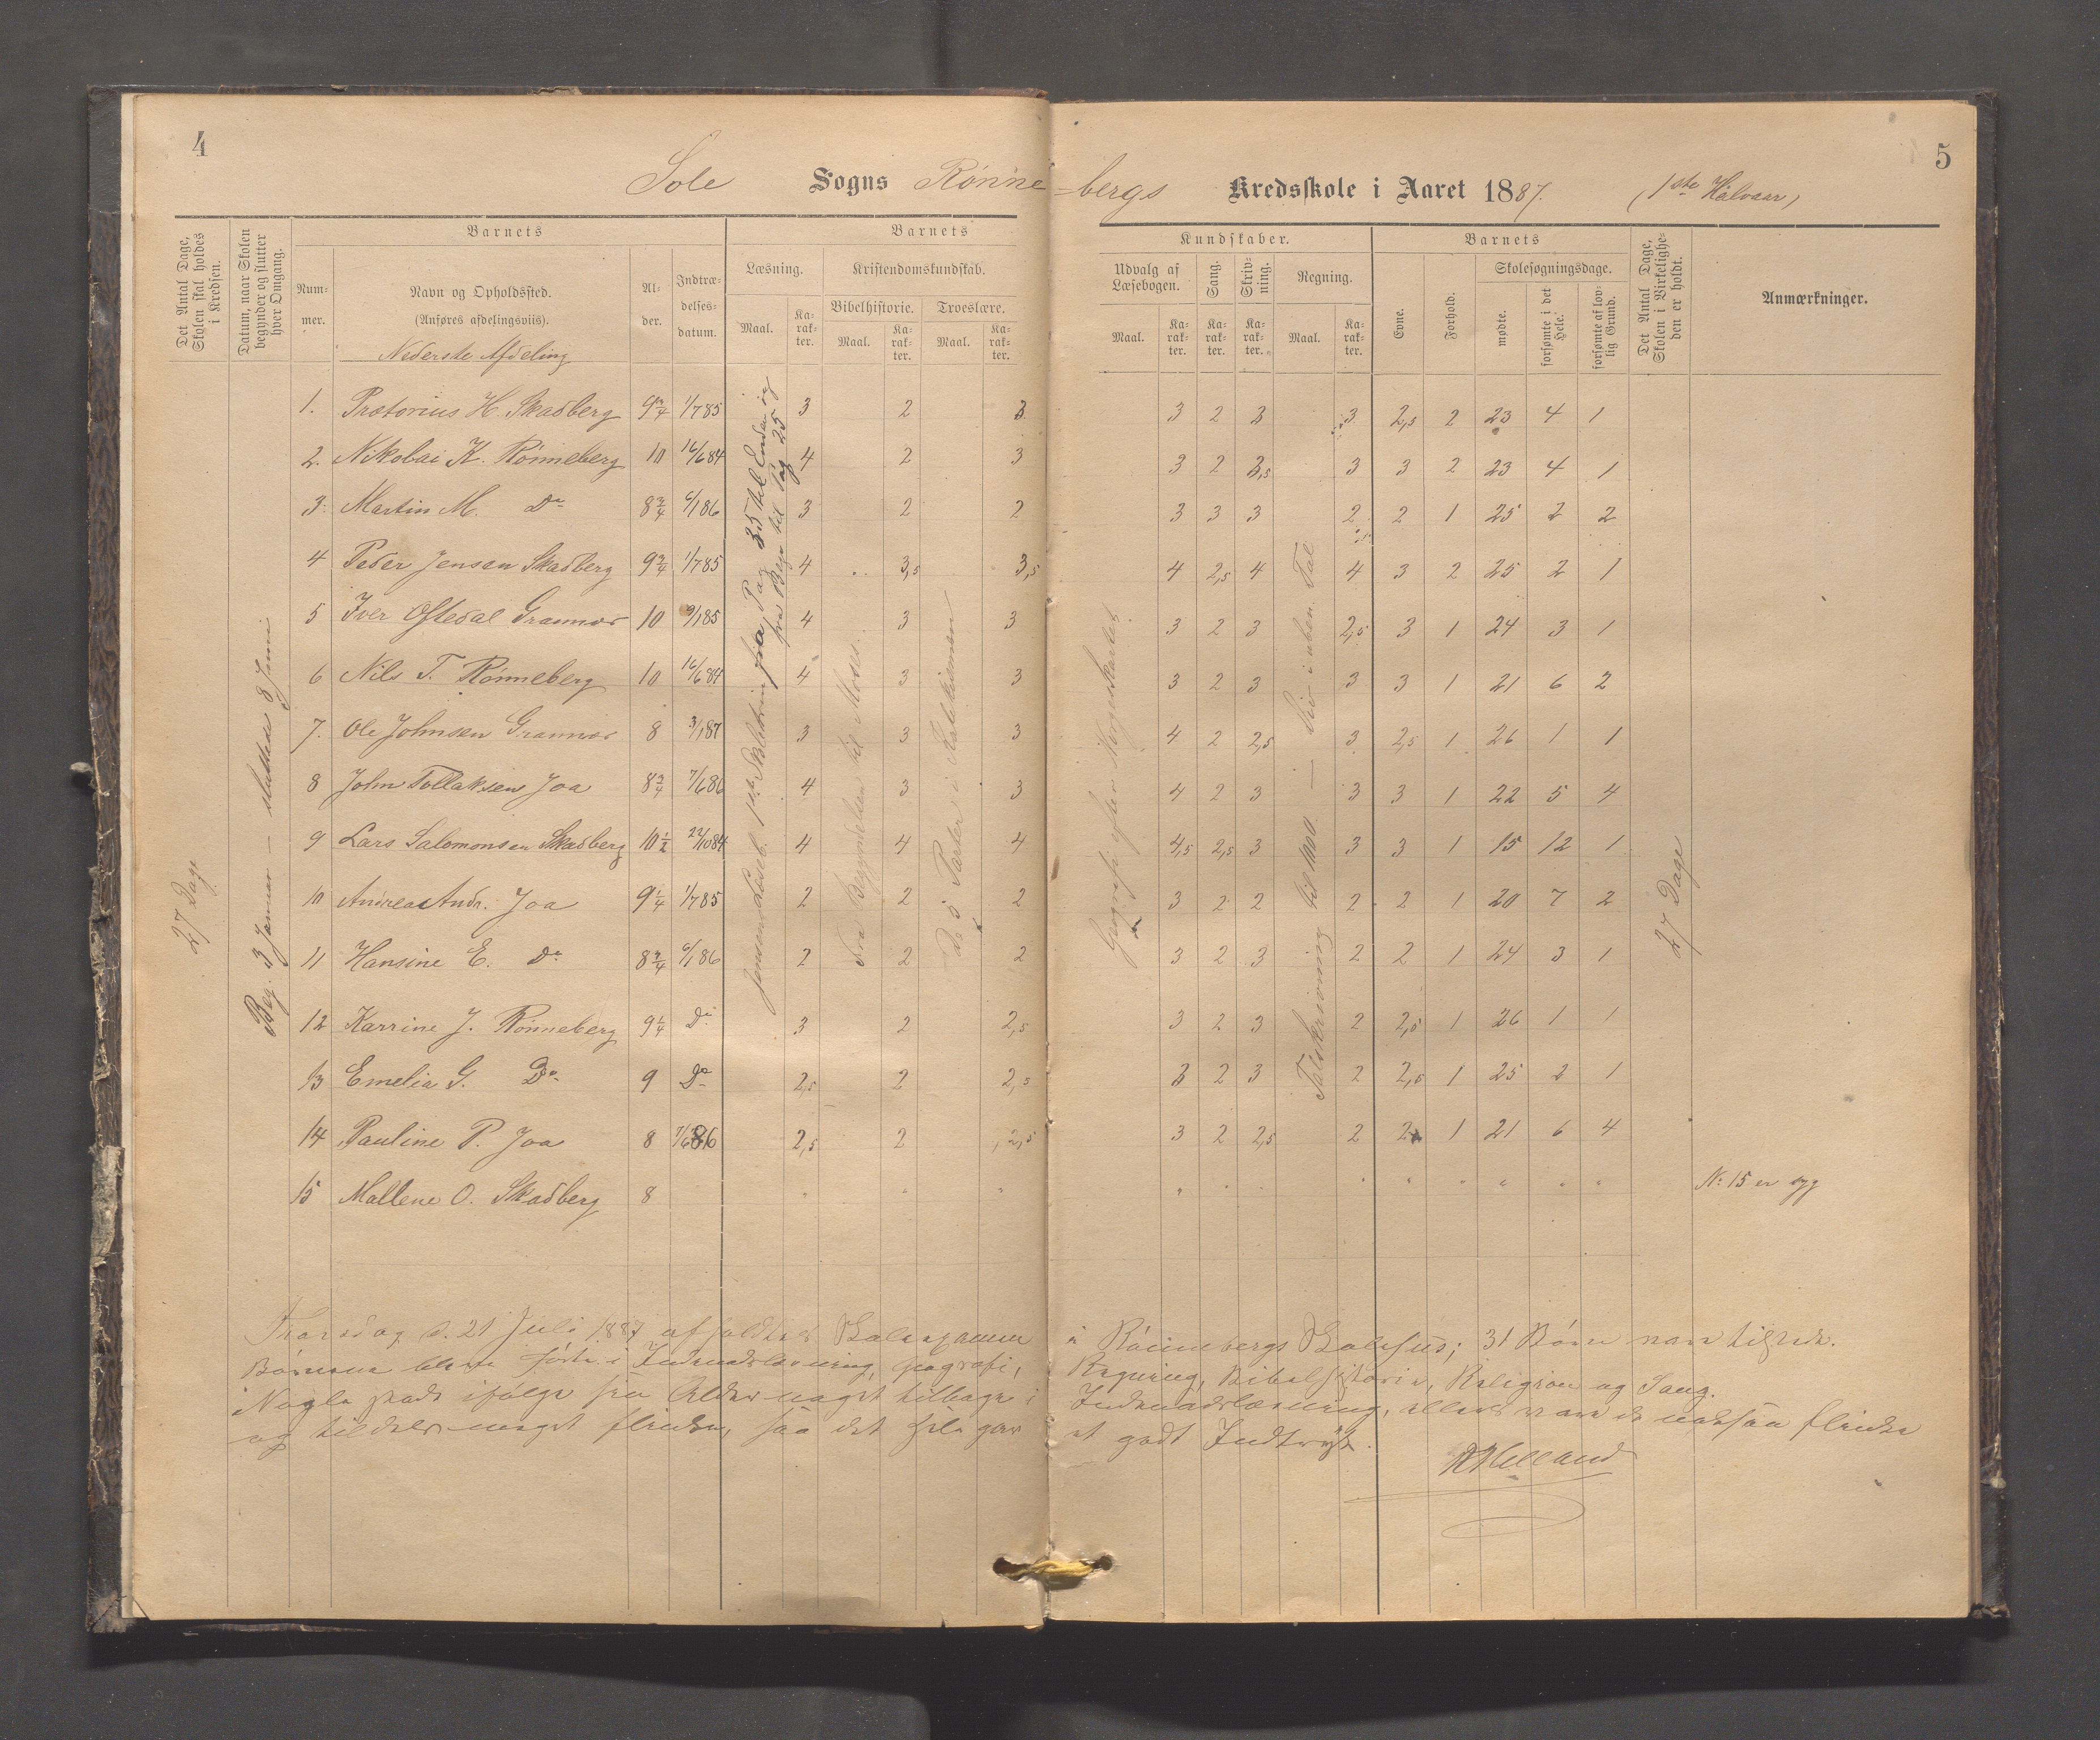 4
5
Sole Sogns Rönne-bergs Kredsskole i Aaret 1887. (1ste Halvaar)
Det Antal Dage, Skolen skal holdes i Kredsen.
Datum, naar Skolen begynder og slutter hver Omgang.
Barnets
Barnets
Kundskaber.
Barnets
Det Antal Dage, Skolen i Virkeligheden er holdt.
Anmærkninger.
Nummer.
Navn og Opholdssted.
(Anføres afdelingsviis).
Nederste Afdeling
Alder.
Indtrædelsesdatum.
Læsning.
Kristendomskundskab.
Bibelhistorie.
Troeslære.
Maal.
Karakter.
Maal.
Karakter.
Maal.
Karakter.
Udvalg af Læsebogen.
Sang.
Skrivning.
Regning.
Maal.
Karakter.
Karakter.
Karakter.
Maal.
Karakter.
Evne.
Forhold.
Skolesøgningsdage.
mødte.
forsømte i det Hele.
forsømte af lovlig Grund.
1. Prætorius H. Skadberg 9 3/4 1/7 85 3 2 3 3 2 3 3 2,5 2 23 4 1
2. Nikolai K. Rønneberg 10 16/6 84 4 2 3 3 2 3,5 3 3 2 23 4 1
3. Martin M. Do 8 3/4 6/1 86 3 2 2 3 3 3 2 2 1 25 2 2
4 Peder Jensen Skadberg 9 3/4 1/7 85 4 3,5 3,5 4 2,5 4 4 3 2 25 2 1
5 Iver Oftedal Grannæs 10 9/1 85 4 3 3 3 2 3 2,5 3 1 24 3 1
6 Nils T. Rönneberg 10 16/6 84 4 3 3 3 2 3 3 3 1 21 6 2
7. Ole Johnsen Grannæs 8 3/1 87 3 3 3 4 2 2,5 3 2,5 1 26 1 1
8 John Tollaksen Joa 8 3/4 7/6 86 4 3 3 4 2 3 3 3 1 22 5 4
9 Lars Salomonsen Skadberg 10 1/2 22/10 84 4 4 4 4,5 2,5 3 3 3 1 15 12 1
10 Andreas Andr. Joa 9 1/4 1/7 85 2 2 2 3 2 2 2 2 1 20 7 2
11 Hansine E. Do 8 3/4 6/1 86 2 2 2 3 2 3 2 2 1 24 3 1
12 Karrine J. Rönneberg 9 1/4 Do 3 2 2,5 3 2 3 2 2,5 1 26 1 1
13 Emelia G. Do 9 Do 2,5 2 2,5 3 2 3 2 2,5 1 25 2 1
14 Pauline P. Joa 8 7/6 86 2,5 2 2,5 3 2 2,5 2 2 1 21 6 4
15 Mallene O. Skadberg 8 " " " " " " " " " " No 15 er syg
27 Dage
Beg. 3 Januar — sluttede 8 Juni
Jensens Læseb. 1ste Skoletrin fra Pag 35 til Enden og
fra Beg. til Pag 25
Fra Begyndelsen til Moses.
De 5 Parter i Katekismen
Geografi efter Norgeskartet
Talskrivning til 1000 — Div. i uben. Tal
27 Dage
Thorsdag d. 21 Juli 1887 afholdtes Skolexamen i Rönnebergs Skolehus; 31 Börn var tilstede.
Börnene bleve hörte i Indenadslæsning, Geografi, Regning, Bibelhistorie, Religion og Sang.
Nogle stode ifölge sin Alder noget tilbage i Indenadslæsning, ellers vare de ogsaa flinke
og tildels meget flinke, saa det hele gav et godt Indtryk.
Helland